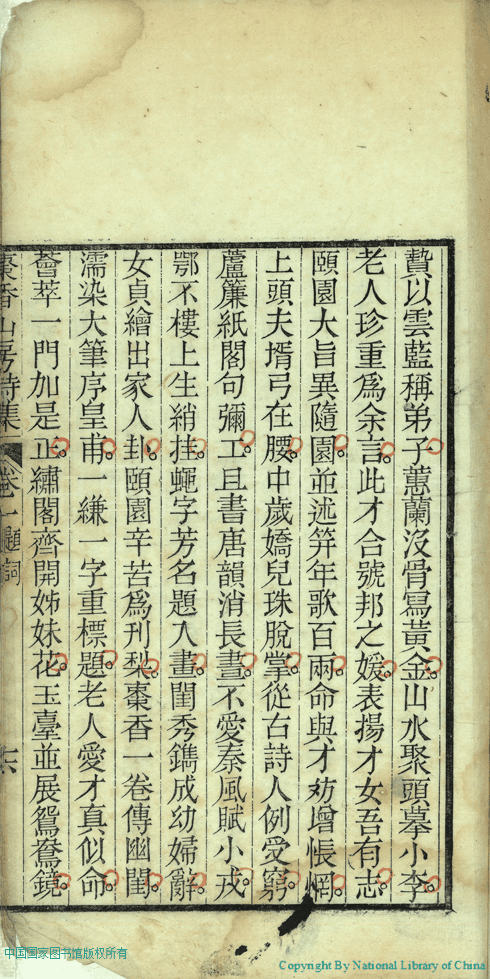 贄以雲藍稱弟子。蕙蘭沒骨寫黃金。山水聚頭摹小李。
老人珍重爲余言。此才合號邦之媛。表揚才女吾有志。
頤園大旨異隨園。並述笄年歌百兩。命與才妨增悵惘。
上頭夫壻弓在腰。中歲嬌兒珠脫掌。從古詩人例受窮。
蘆簾紙閣句彌工。且書唐韻消長晝。不愛秦風賦小戎。
鄂不樓上生綃挂。蠅字芳名題入畫。閨秀鐫成幼婦辭。
女貞繪出家人卦。頤園辛苦爲刊梨。棗香一卷傳幽閨。
濡染大筆序皇甫。一縑一字重標題。老人愛才真似命。
薈萃一門加是正。繡閣齊開姊妹花。玉臺並展鴛鴦鏡。
棗香山房詩集 卷一題詞 六
中国国家图书馆版权所有
Copyright By National Library of China